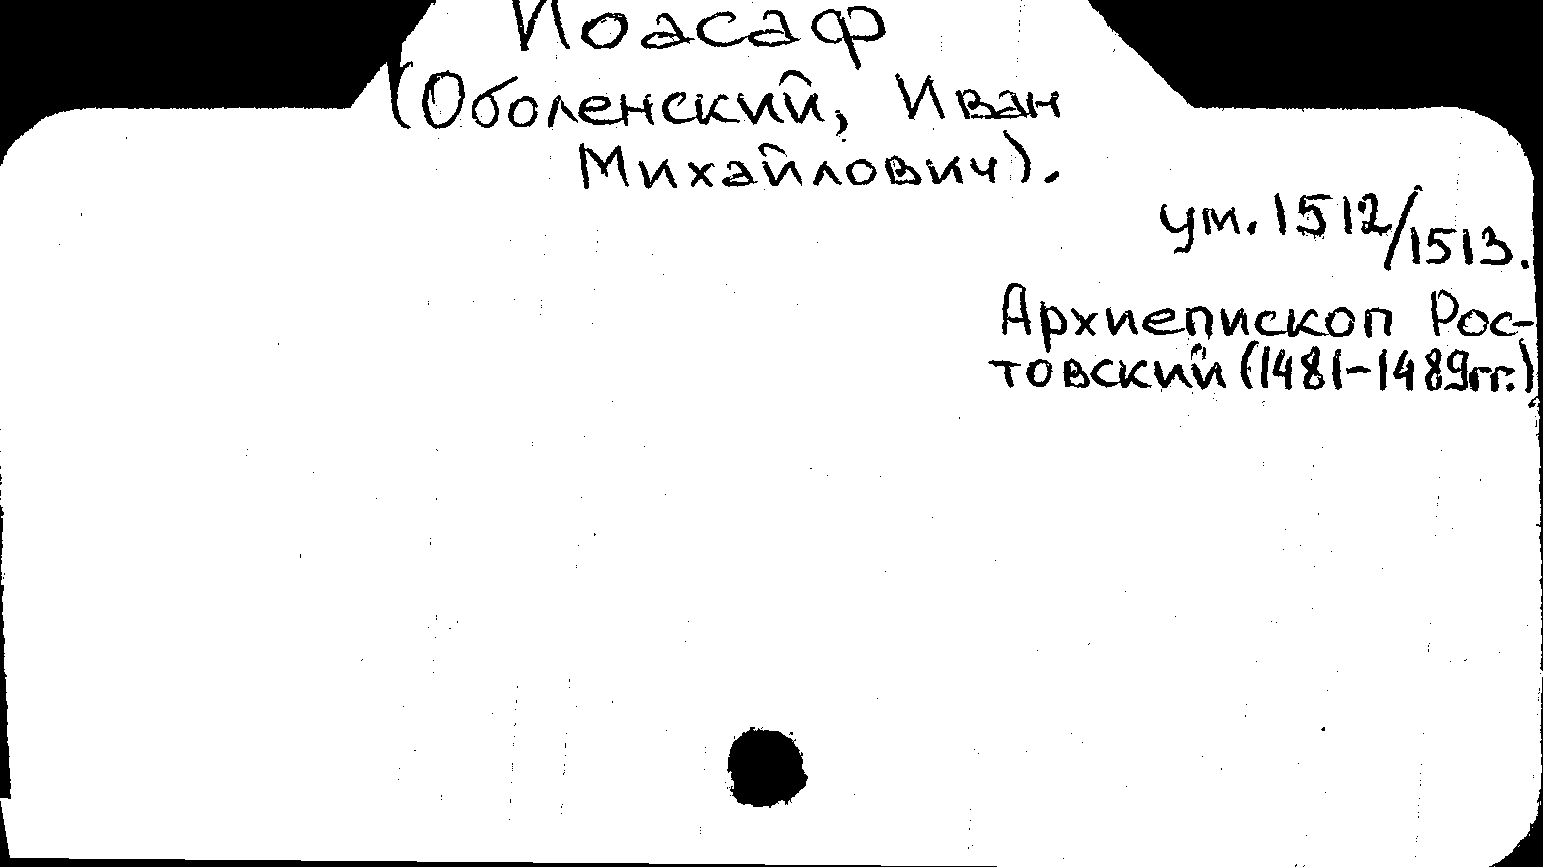 Иоасаф
(Оболенский, Иван
Михайлович).
ум. 1512/1513.
Архиепископ Рос-
товский (1481-1489гг.)